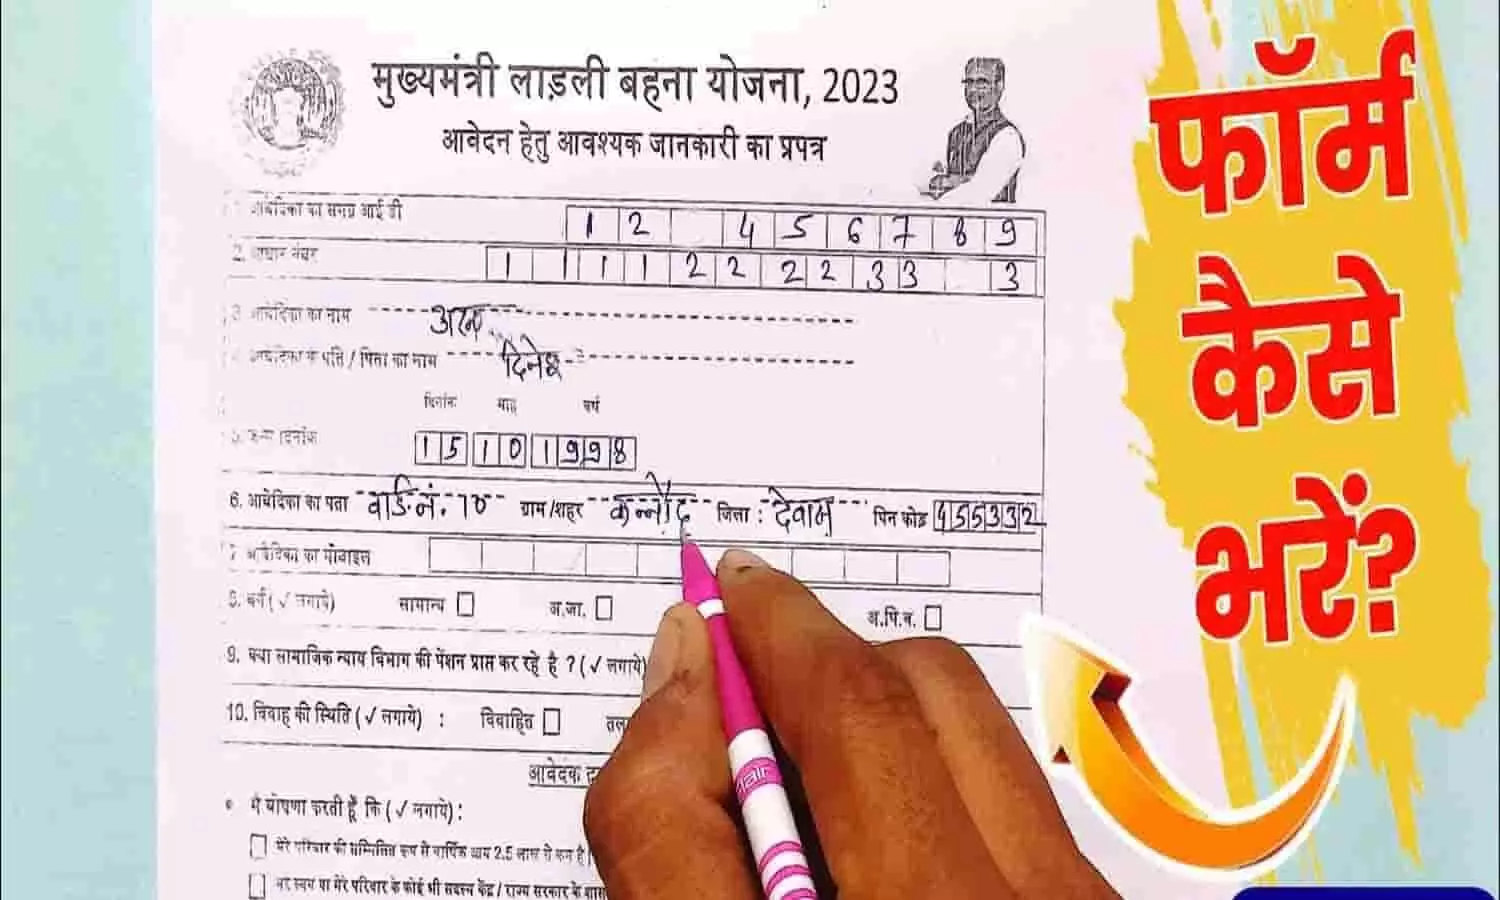 मुख्यमंत्री लाड़ली बहना योजना, 2023
आवेदन हेतु आवश्यक जानकारी का प्रपत्र
आवेदिका का समग्र आई डी 1 2 4 5 6 7 8 9
2. आधार नंबर 1 1 1 1 2 2 2 2 3 3 3
3. आवेदिका का नाम
आवेदिका के पति / पिता का नाम दिनेश
दिनांक माह वर्ष
5. जन्म दिनांक 15 10 1998
6. आवेदिका का पता वार्ड नं. 10 ग्राम/शहर कन्नौद जिला : देवास पिन कोड 455332
7. आवेदिका का मोबाइल
8. वर्ग (✓ लगाये) सामान्य अ.जा. अ.पि.व.
9. क्या सामाजिक न्याय विभाग की पेंशन प्राप्त कर रहे है ? (✓ लगाये)
10. विवाह की स्थिति (✓ लगाये) : विवाहित
आवेदक
• मैं घोषणा करती हूँ कि (✓ लगाये) :
मेरे परिवार की सम्मिलित रूप से वार्षिक आय 2.5 लाख से कम है
मेरे स्वयं या मेरे परिवार के कोई भी सदस्य केंद्र / राज्य सरकार के
फॉर्म
कैसे
भरें?